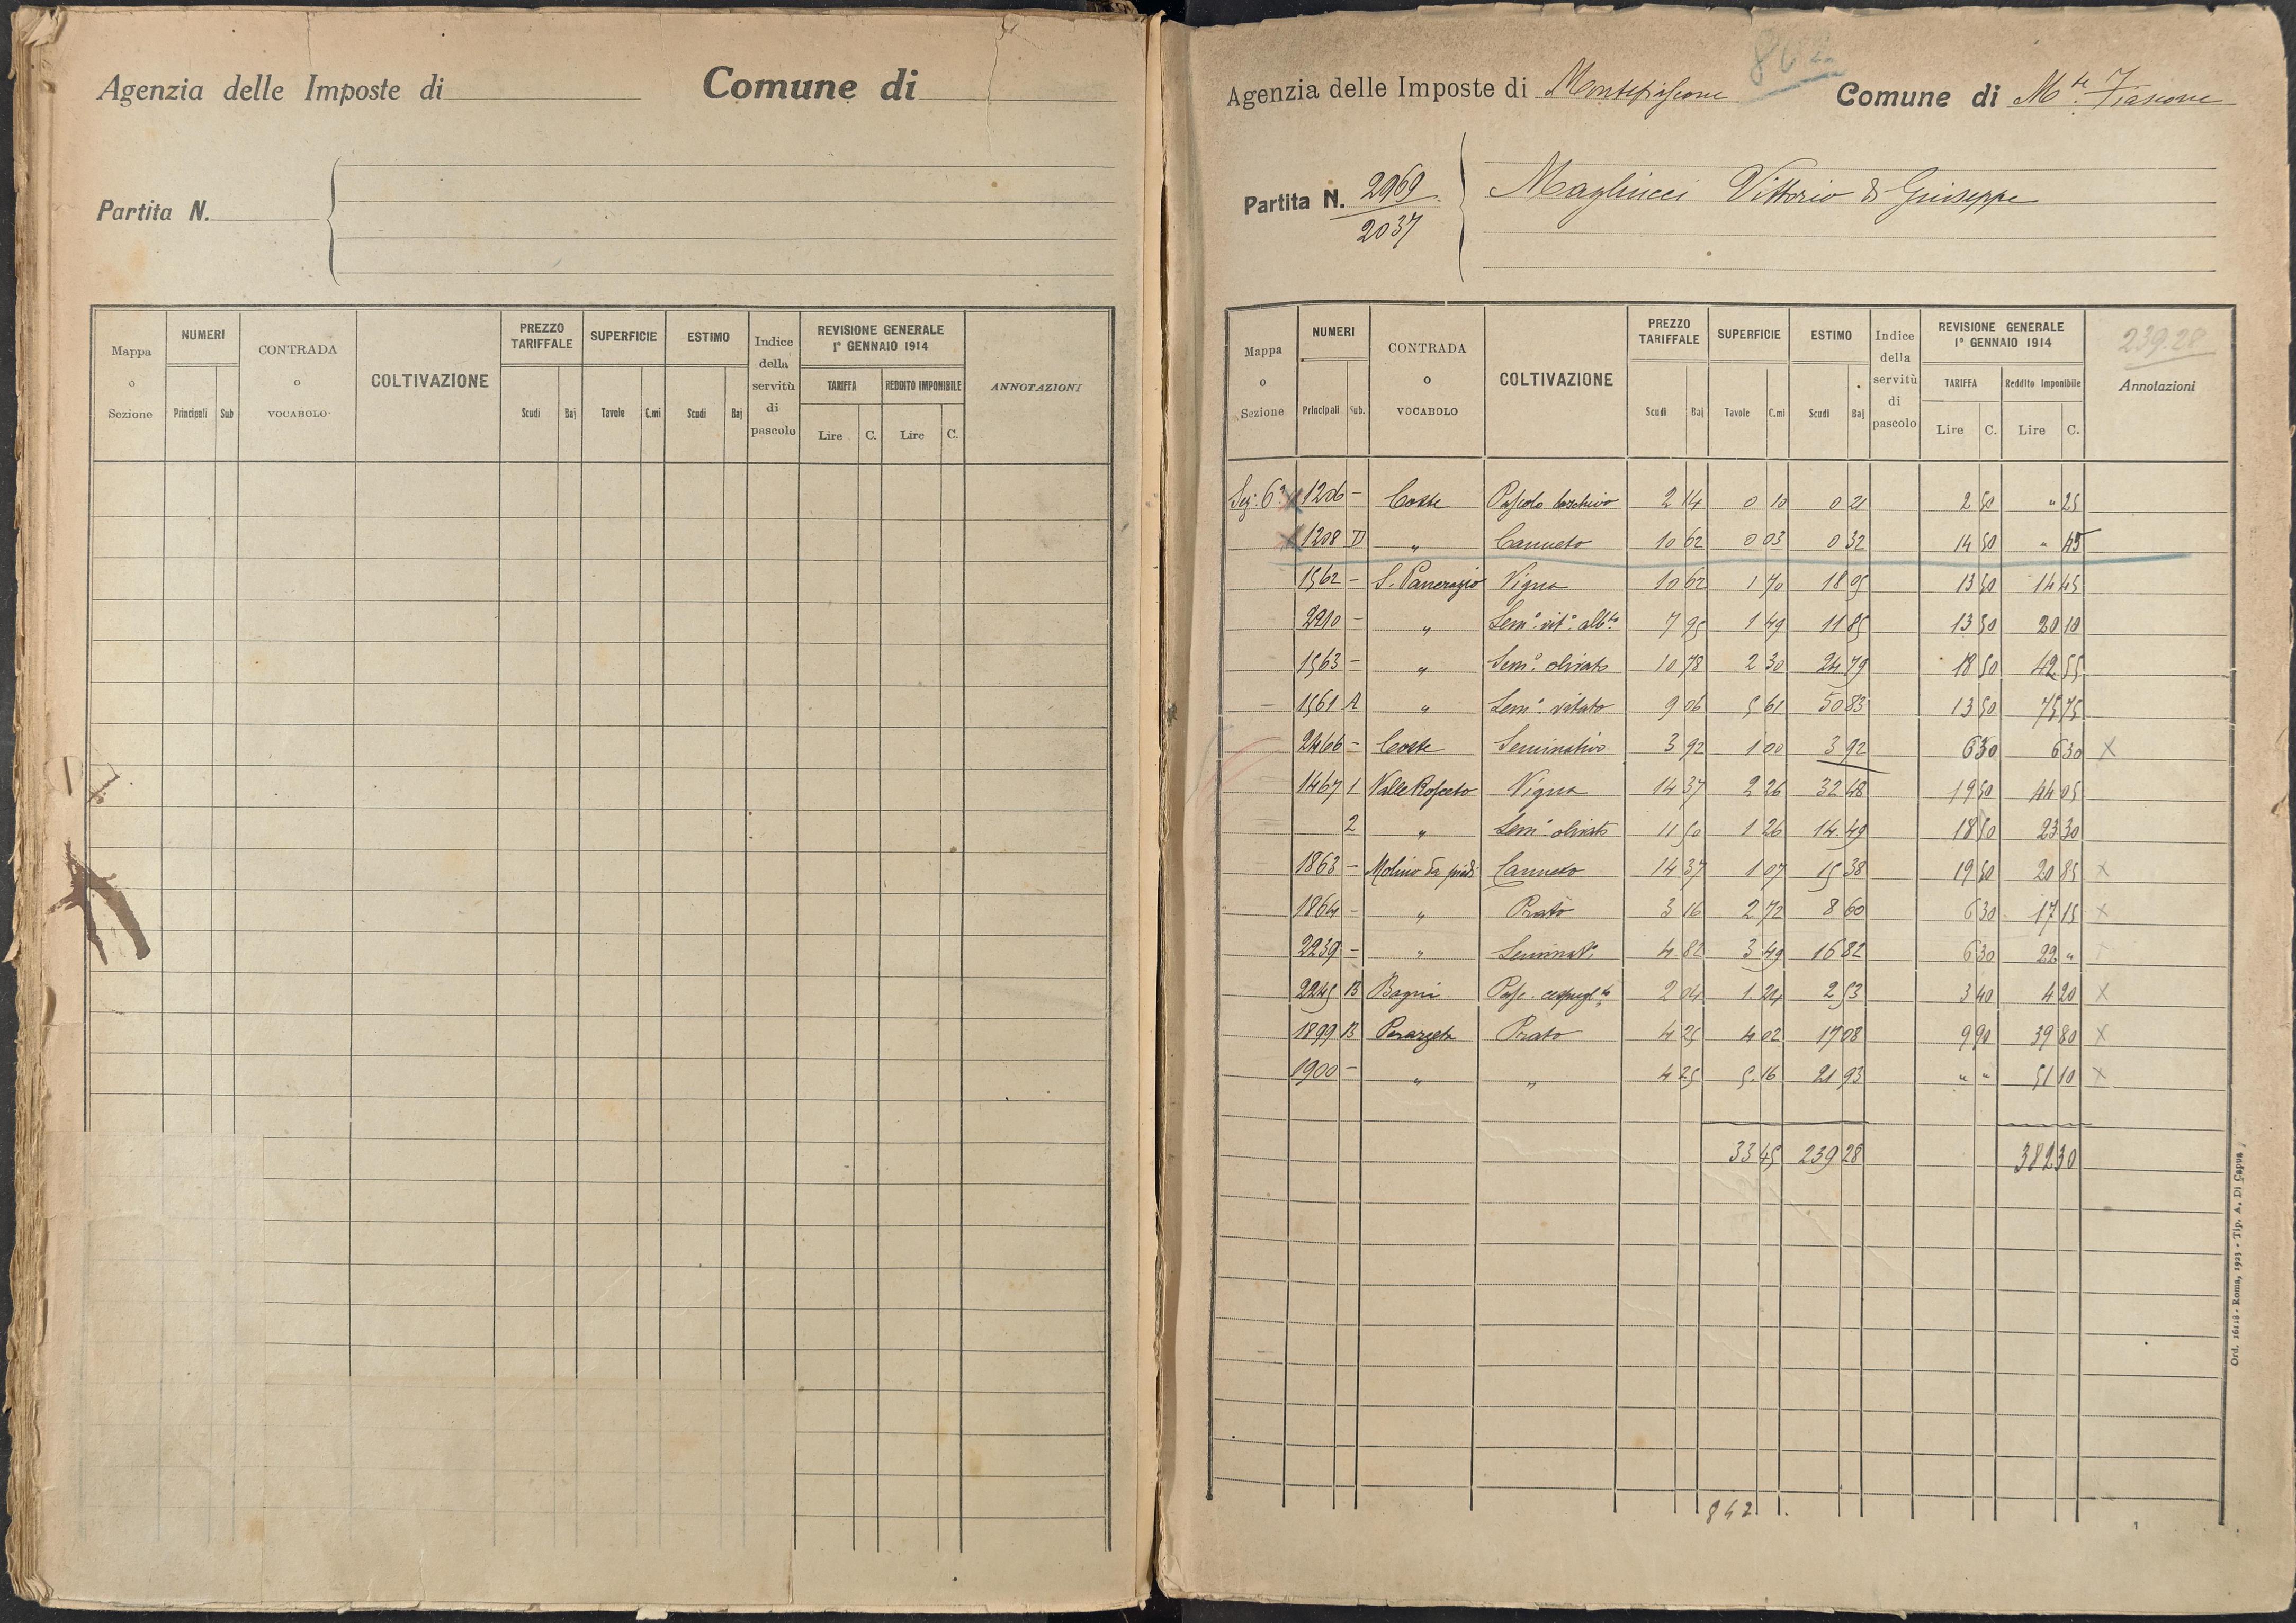 Agenzia delle Imposte di Comune di
Partita N.
Mappa o Sezione NUMERI Principali Sub CONTRADA o VOCABOLO COLTIVAZIONE PREZZO TARIFFALE Scudi Baj SUPERFICIE Tavole C.mi ESTIMO Scudi Baj Indice della servitù di pascolo REVISIONE GENERALE 1° GENNAIO 1914 TARIFFA Lire C. REDDITO IMPONIBILE Lire C. ANNOTAZIONI
Agenzia delle Imposte di Montefiascone Comune di M.te Fiascone
Partita N. 2969
2037
Magliucci Vittorio di Giuseppe
239.28
Mappa o Sezione NUMERI Principali Sub. CONTRADA o VOCABOLO COLTIVAZIONE PREZZO TARIFFALE Scudi Baj SUPERFICIE Tavole C.mi ESTIMO Scudi Baj Indice della servitù di pascolo REVISIONE GENERALE 1° GENNAIO 1914 TARIFFA Lire C. Reddito Imponibile Lire C. Annotazioni
Sez: 6ª 1206 – Coste Pascolo boschivo 2 14 0 10 0 21 2 50 " 25
1208 D " Canneto 10 62 0 03 0 32 14 50 " 45
1562 – S. Pancrazio Vigna 10 62 1 70 18 05 13 50 14 45
2210 – " Sem.° vit.° alb.to 7 95 1 49 11 85 13 50 20 10
1563 – " Sem.° olivato 10 78 2 30 24 79 18 50 42 55
1561 A " Sem.° vitato 9 06 5 61 50 83 13 50 75 75
2466 – Coste Seminativo 3 92 1 00 3 92 6 30 6 30 X
1467 1 Valle Rosceto Vigna 14 37 2 26 32 48 19 50 44 05
2 " Sem.° olivato 11 50 1 26 14 49 18 50 23 30
1863 – Molino da piedi Canneto 14 37 1 07 15 38 19 50 20 85 X
1864 – " Prato 3 16 2 72 8 60 6 30 17 15 X
2239 – " Seminat.° 4 82 3 49 16 82 6 30 22 "
2245 B Bagni Pasc. cespugl.to 2 04 1 24 2 53 3 40 4 20 X
1899 B Perazzeta Prato 4 25 4 02 17 08 9 90 39 80 X
1900 – " " 4 25 5 16 21 93 " " 51 10 X
33 45 239 28 382 30
842
Ord. 16118 - Roma, 1923 - Tip. A. Di Capua